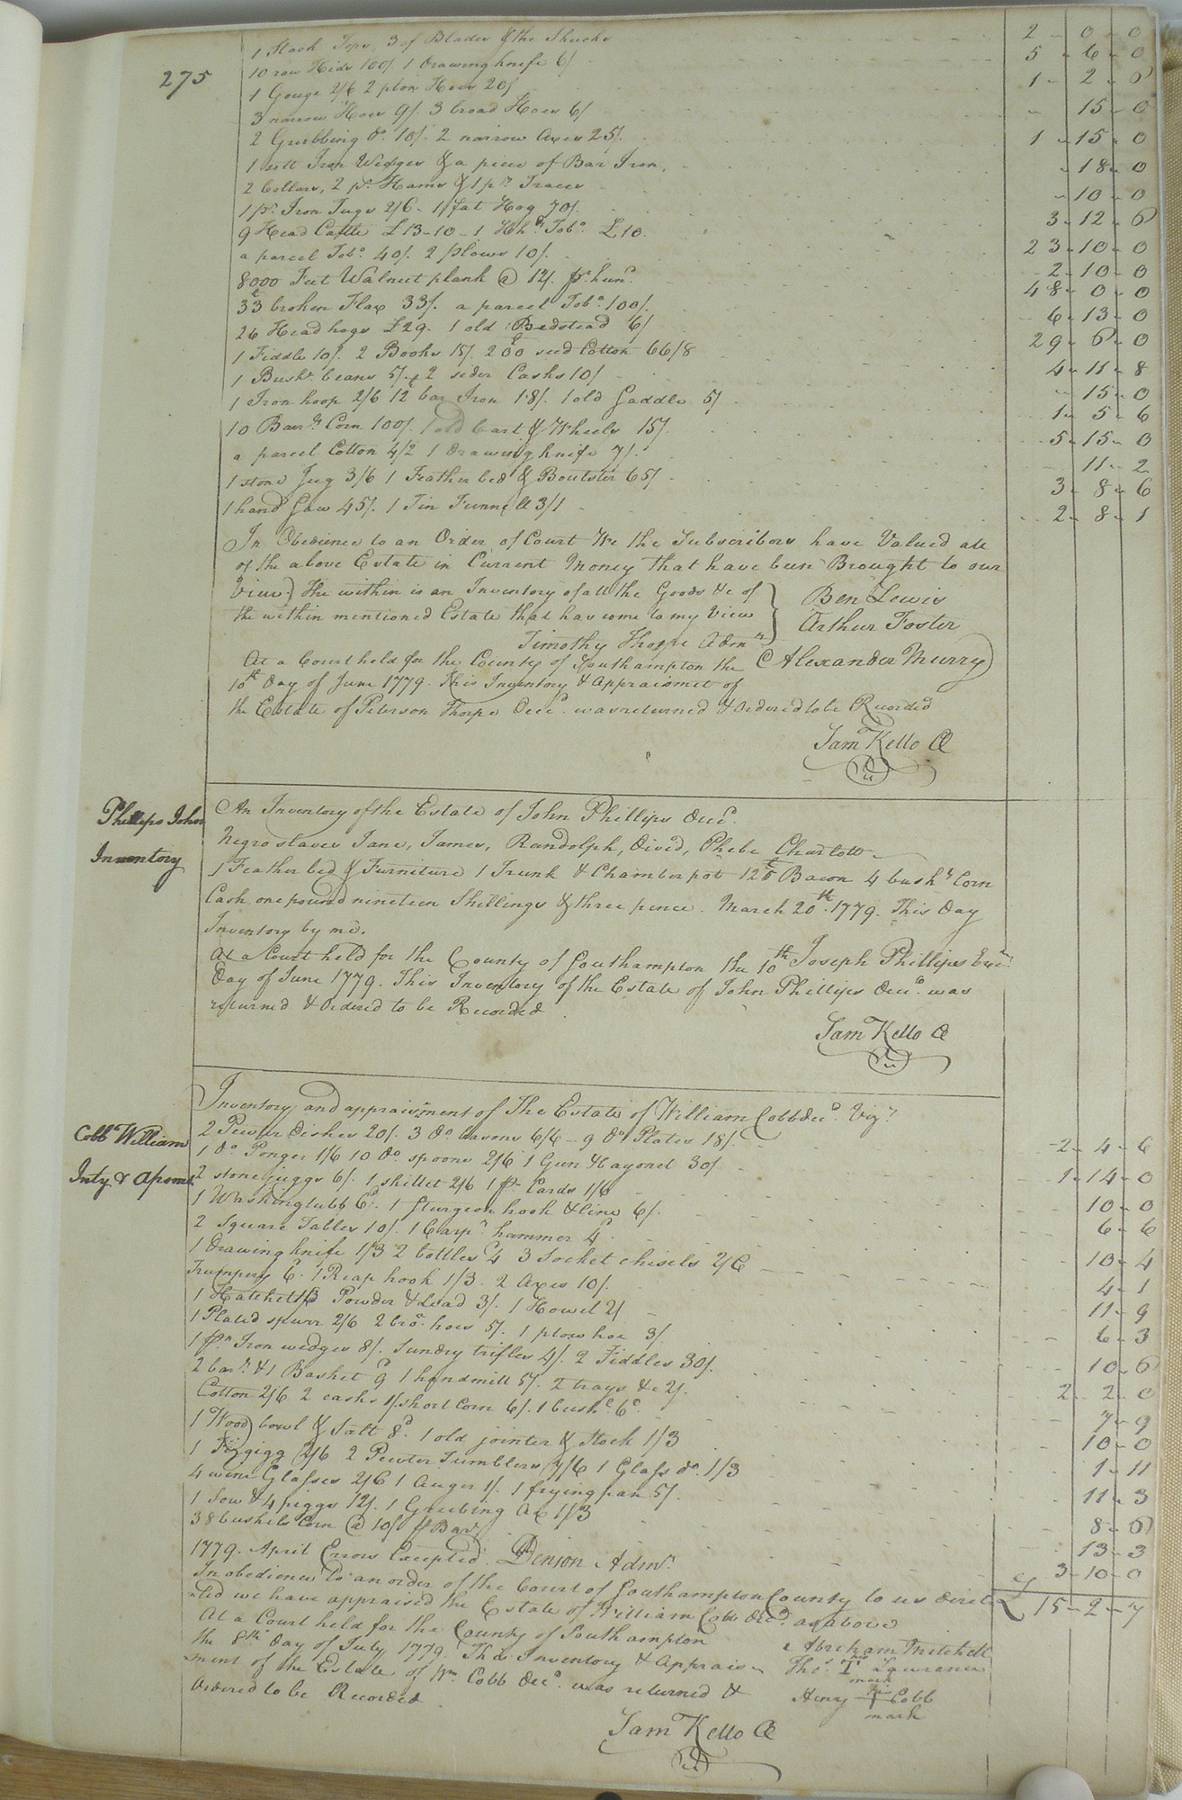 275
1 Stack Tops, 3 of Blades & the Shucks 2 - 0 - 0
10 raw Hids 100/. 1 Drawing knife 6/ 5 - 6 - 0
1 Gouge 2/6 2 plow Hoes 20/ 1 - 2 - 6
3 narrow Hoes 9/. 3 broad Hoes 6/ - 15 - 0
2 Grubbing Do. 10/. 2 narrow Axes 25/. 1 - 15 - 0
1 sett Iron Wedges & a piece of Bar Iron, - 18 - 0
2 Collars, 2 pr. Hams & 1 pr. Traces - 10 - 0
1 pr. Iron Tugs 2/6 - 1 fat Hog 70/. 3 - 12 - 6
9 Head Cattle £13-10 - 1 Hhd. Tobo. £10. 23 - 10 - 0
a parcel Tobo. 40/. 2 plows 10/. - 2 - 10 - 0
8000 Feet Walnut plank @ 12/. pr. hund. 48 - 0 - 0
33 broken Flax 33/. a parcel Tobo. 100/. 6 - 13 - 0
26 Head hogs £29. 1 old Bedstead 6/ 29 - 6 - 0
1 Fiddle 10/. 2 Books 15/. 200 seed Cotton 66/8 4 - 11 - 8
1 Bushl. beans 5/. 2 sider Casks 10/ - 15 - 0
1 Iron hoop 2/6 12 bar Iron 18/. 1 old Saddle 5/ 1 - 5 - 6
10 Barrls. Corn 100/. 1 old Cart & Wheels 15/. 5 - 15 - 0
a parcel Cotton 4/2 1 Drawing knife 7/. - 11 - 2
1 stone Jug 3/6 1 Feather bed & Boulster 65/. 3 - 8 - 6
1 hand Saw 45/. 1 Tin Funnell 3/1 2 - 8 - 1
In Obedience to an Order of Court We the Subscribors have Valued all
of the above Estate in Current Money that have been Brought to our
View) The within is an Inventory of all the Goods &c of
the within mentioned Estate that has come to my View
Ben Lewis
Arthur Foster
Timothy Thorpe Admr.
Alexander Murry
At a Court held for the County of Southampton the
10th Day of June 1779. This Inventory & Appraismet of
the Estate of Peterson Thorpe Decd. was returned & Ordered to be Recorded
Sam Kello Cl
Phillips John
Inventory
An Inventory of the Estate of John Phillips Decd.
Negro slaves Jane, James, Randolph, David, Phebe Charlott
1 Feather bed & Furniture 1 Trunk & Chamber pot 125 Bacon 4 bushs. Corn
Cash one pound nineteen Shillings & three pence. March 20th. 1779. This Day
Inventory by me.
Joseph Phillips Exer.
At a Court held for the County of Southampton the 10th
Day of June 1779. This Inventory of the Estate of John Phillips Decd. was
returned & Ordered to be Recorded
Sam Kello Cl
Cobb William
Inty. & Apsmt.
Inventory and appraisment of The Estate of William Cobb decd. Vizt.
2 Pewter dishes 20/. 3 Do basons 6/6 - 9 Do Plates 18/. 2 - 4 - 6
1 Do. Ponger 1/6 10 Do. spoons 2/6 1 Gun & bayonet 30/. 1 - 14 - 0
2 stone juggs 6/. 1 skillet 2/6 1 pr. Cards 1/6 10 - 0
1 Washing tubb 6d. 1 Sturgeon hook & line 6/. 6 - 6
2 Square Tables 10/. 1 Carpr. hammer 4d. 10 - 4
1 Drawing knife 1/3 2 bottles 4d 3 Socket chisels 2/6 4 - 1
Trumpery 6d. 1 Reap hook 1/3. 2 Axes 10/. 11 - 9
1 Hatchet 1/3 Powder & Lead 3/. 1 Howel 2/ 6 - 3
1 Plated spurr 2/6 2 bro. hoes 5/. 1 plow hoe 3/ 10 - 6
1 pr. Iron wedges 8/. Sundry trifles 4/. 2 Fiddles 30/. 2 - 2 - 0
2 barrs. & 1 Basket 9d 1 handmill 5/. 2 trays &c 2/. 7 - 9
Cotton 2/6 2 casks 1/ short Corn 6/. 1 bushl. 6d. 10 - 0
1 Wood bowl & Salt 8d. 1 old jointer & Stock 1/3 1 - 11
1 Figgigg 2/6 2 Pewter Tumblers 7/6 1 Glass do. 1/3 11 - 3
4 wine Glasses 2/6 1 Auger 1/. 1 frying pan 5/. 8 - 6
1 Sow & 4 piggs 12/. 1 Grubing Ax 1/3 13 - 3
38 bushels Corn @ 10/ pr Barl. 3 - 10 - 0
1779. April Errors Excepted. Denson Admr. £ 15 - 2 - 7
In obedience to an order of the Court of Southampton County to us direc
ted we have appraised the Estate of William Cobb decd. as above
At a Court held for the County of Southampton
the 8th. Day of July 1779. This Inventory & Apprais
ment of the Estate of Wm. Cobb Decd. was returned &
Ordered to be Recorded.
Abraham Mitchell
Thos. his T mark Lawrence
Henry his + mark Cobb
Sam Kello Cl